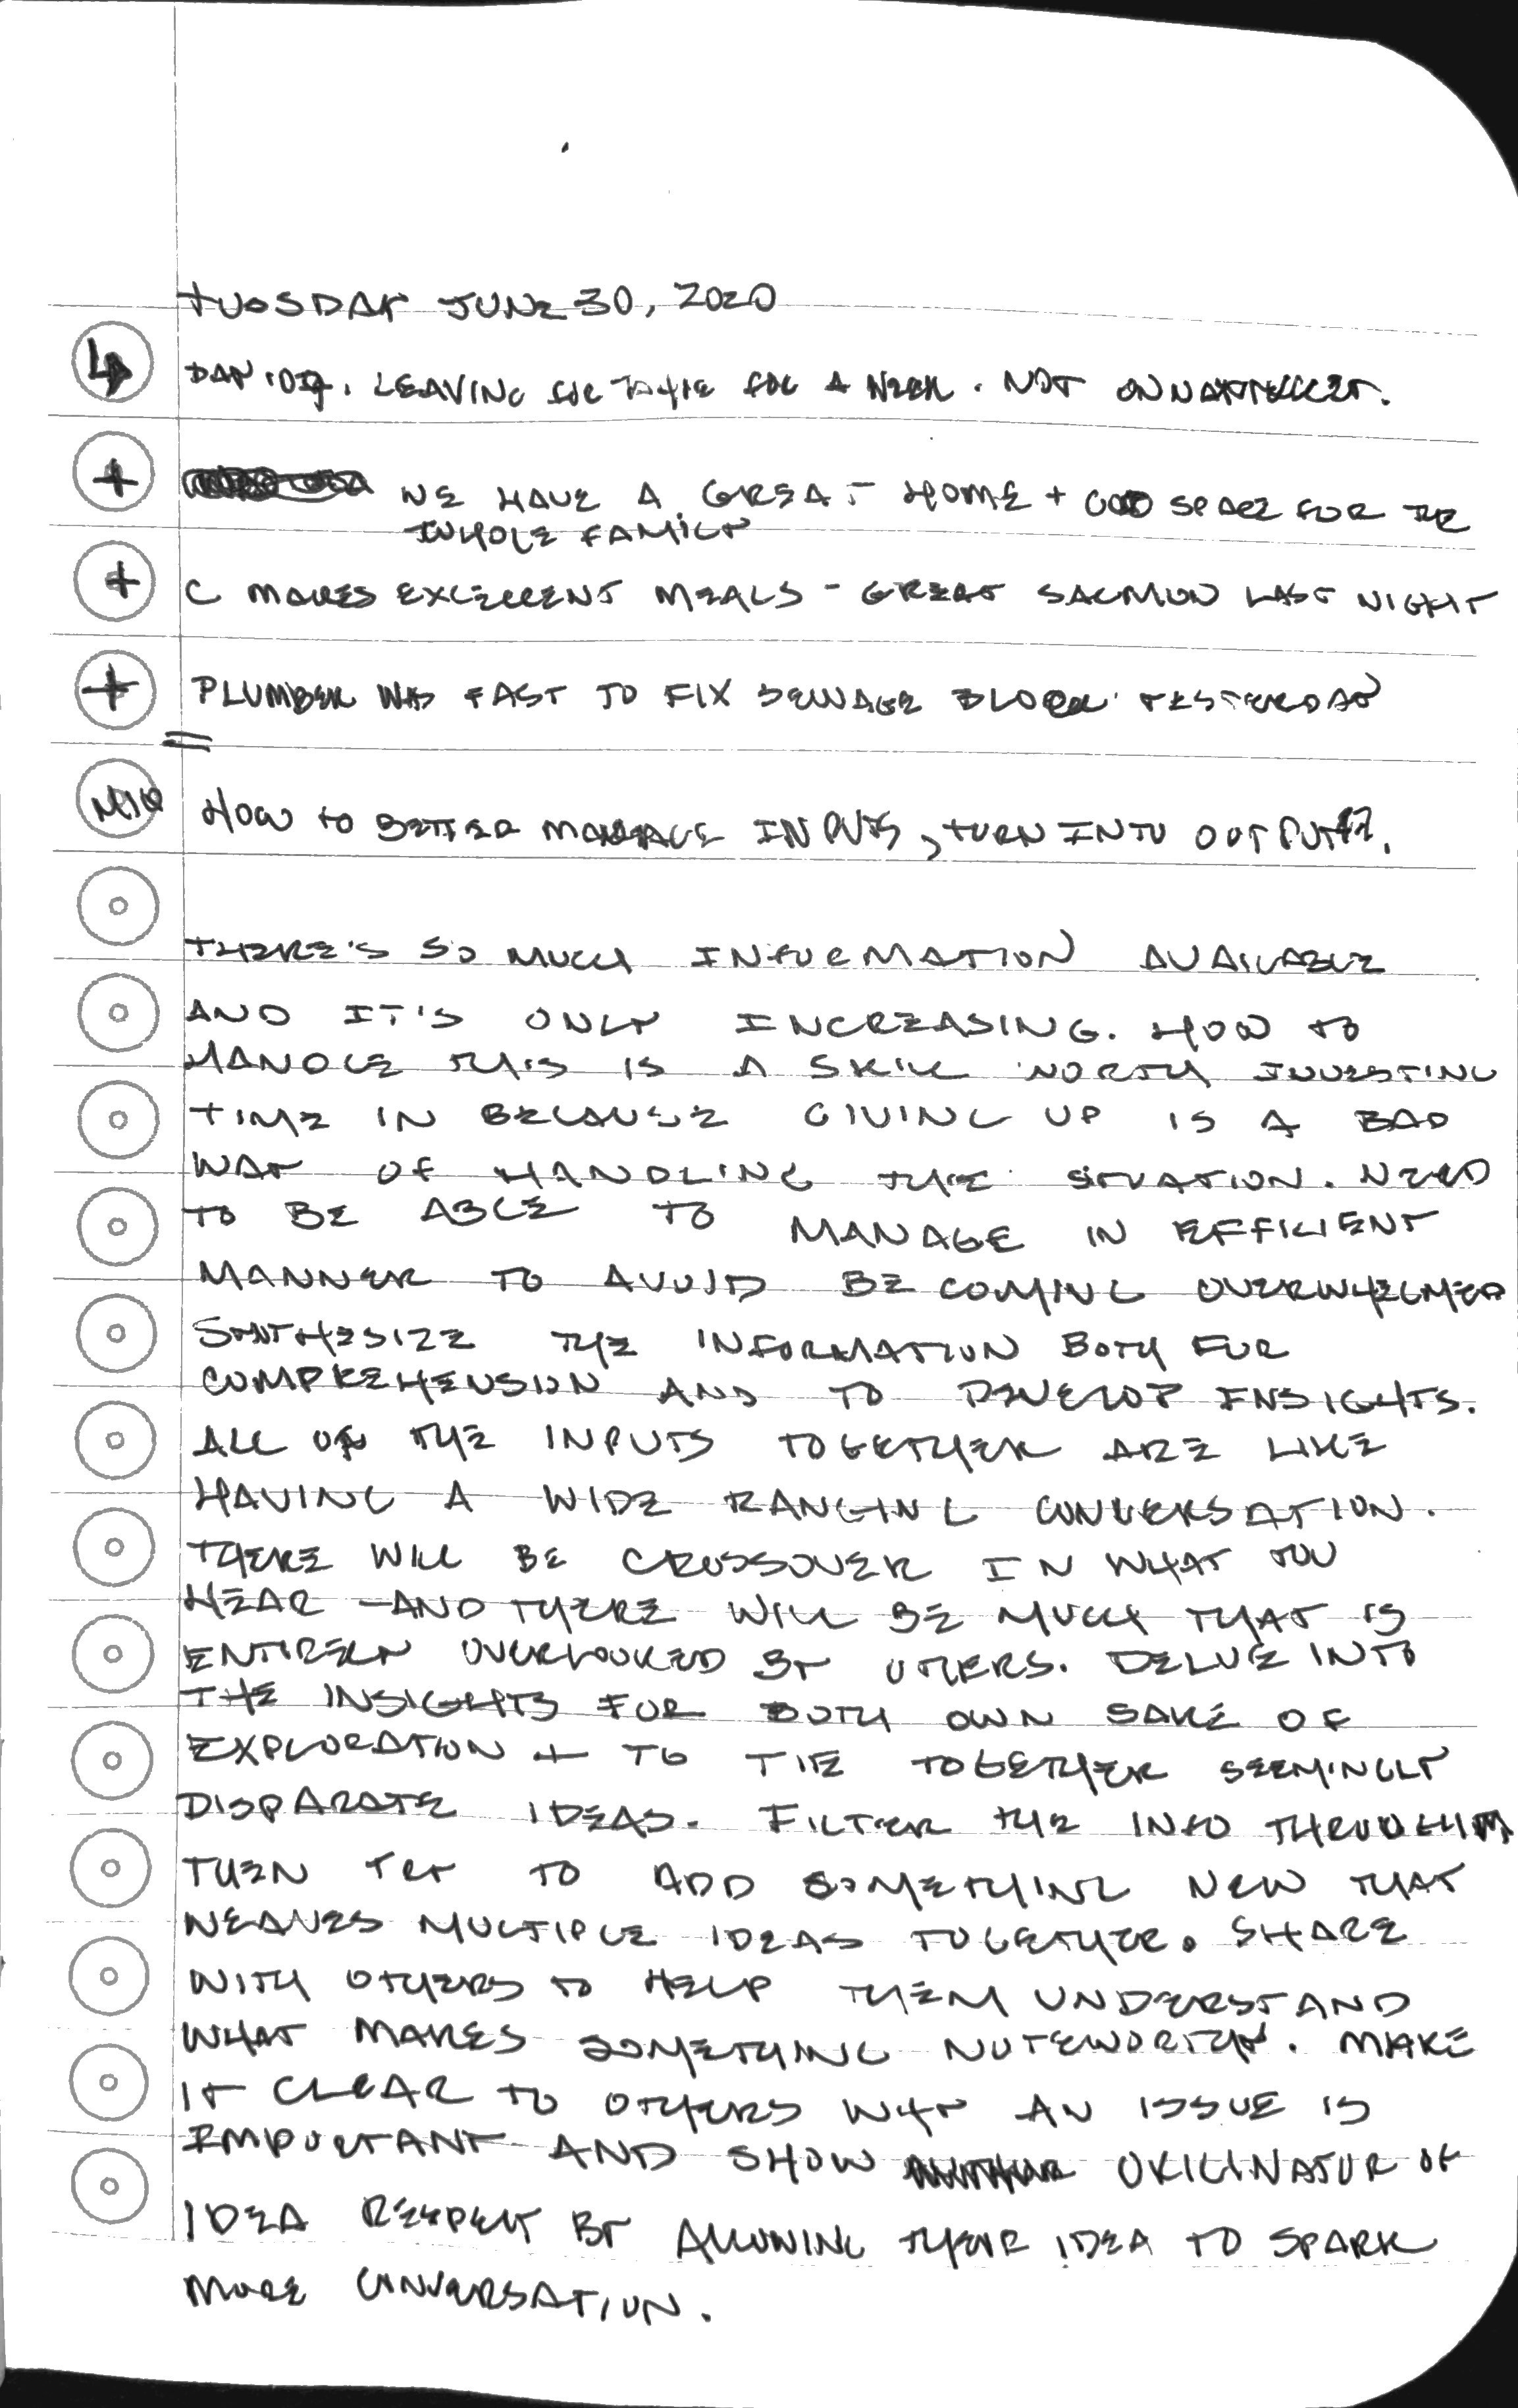 TUESDAY JUNE 30, 2020
DAY 109. LEAVING FOR FOR A WEEK. NOT ON
+ WE HAVE A GREAT HOME + GOOD SPACE FOR THE
WHOLE FAMILY
+ C MAKES EXCELLENT MEALS - GREAT SALMON LAST NIGHT
+ PLUMBER WAS FAST TO FIX SEWAGE BLOCK YESTERDAY
MIQ HOW TO BETTER MANAGE INPUTS, TURN INTO OUTPUT
THERE'S SO MUCH INFORMATION AVAILABLE
AND IT'S ONLY INCREASING. HOW TO
HANDLE THIS IS A SKILL WORTH INVESTING
TIME IN BECAUSE GIVING UP IS A BAD
WAY OF HANDLING THE SITUATION. NEED
TO BE ABLE TO MANAGE IN EFFICIENT
MANNER TO AVOID BECOMING OVERWHELMED
SYNTHESIZE THE INFORMATION BOTH FOR
COMPREHENSION AND TO DEVELOP INSIGHTS.
ALL OF THE INPUTS TOGETHER ARE LIKE
HAVING A WIDE RANGING CONVERSATION.
THERE WILL BE CROSSOVER IN WHAT YOU
HEAR - AND THERE WILL BE MUCH THAT IS
ENTIRELY OVERLOOKED BY OTHERS. DELVE INTO
THE INSIGHTS FOR BOTH OWN SAKE OF
EXPLORATION + TO TIE TOGETHER SEEMINGLY
DISPARATE IDEAS. FILTER THE INFO THROUGH
THEN TRY TO ADD SOMETHING NEW THAT
WEAVES MULTIPLE IDEAS TOGETHER. SHARE
WITH OTHERS TO HELP THEM UNDERSTAND
WHAT MAKES SOMETHING NOTEWORTHY. MAKE
IT CLEAR TO OTHERS WHY AN ISSUE IS
IMPORTANT AND SHOW ORIGINATOR OF
IDEA RESPECT BY ALLOWING THEIR IDEA TO SPARK
MORE CONVERSATION.